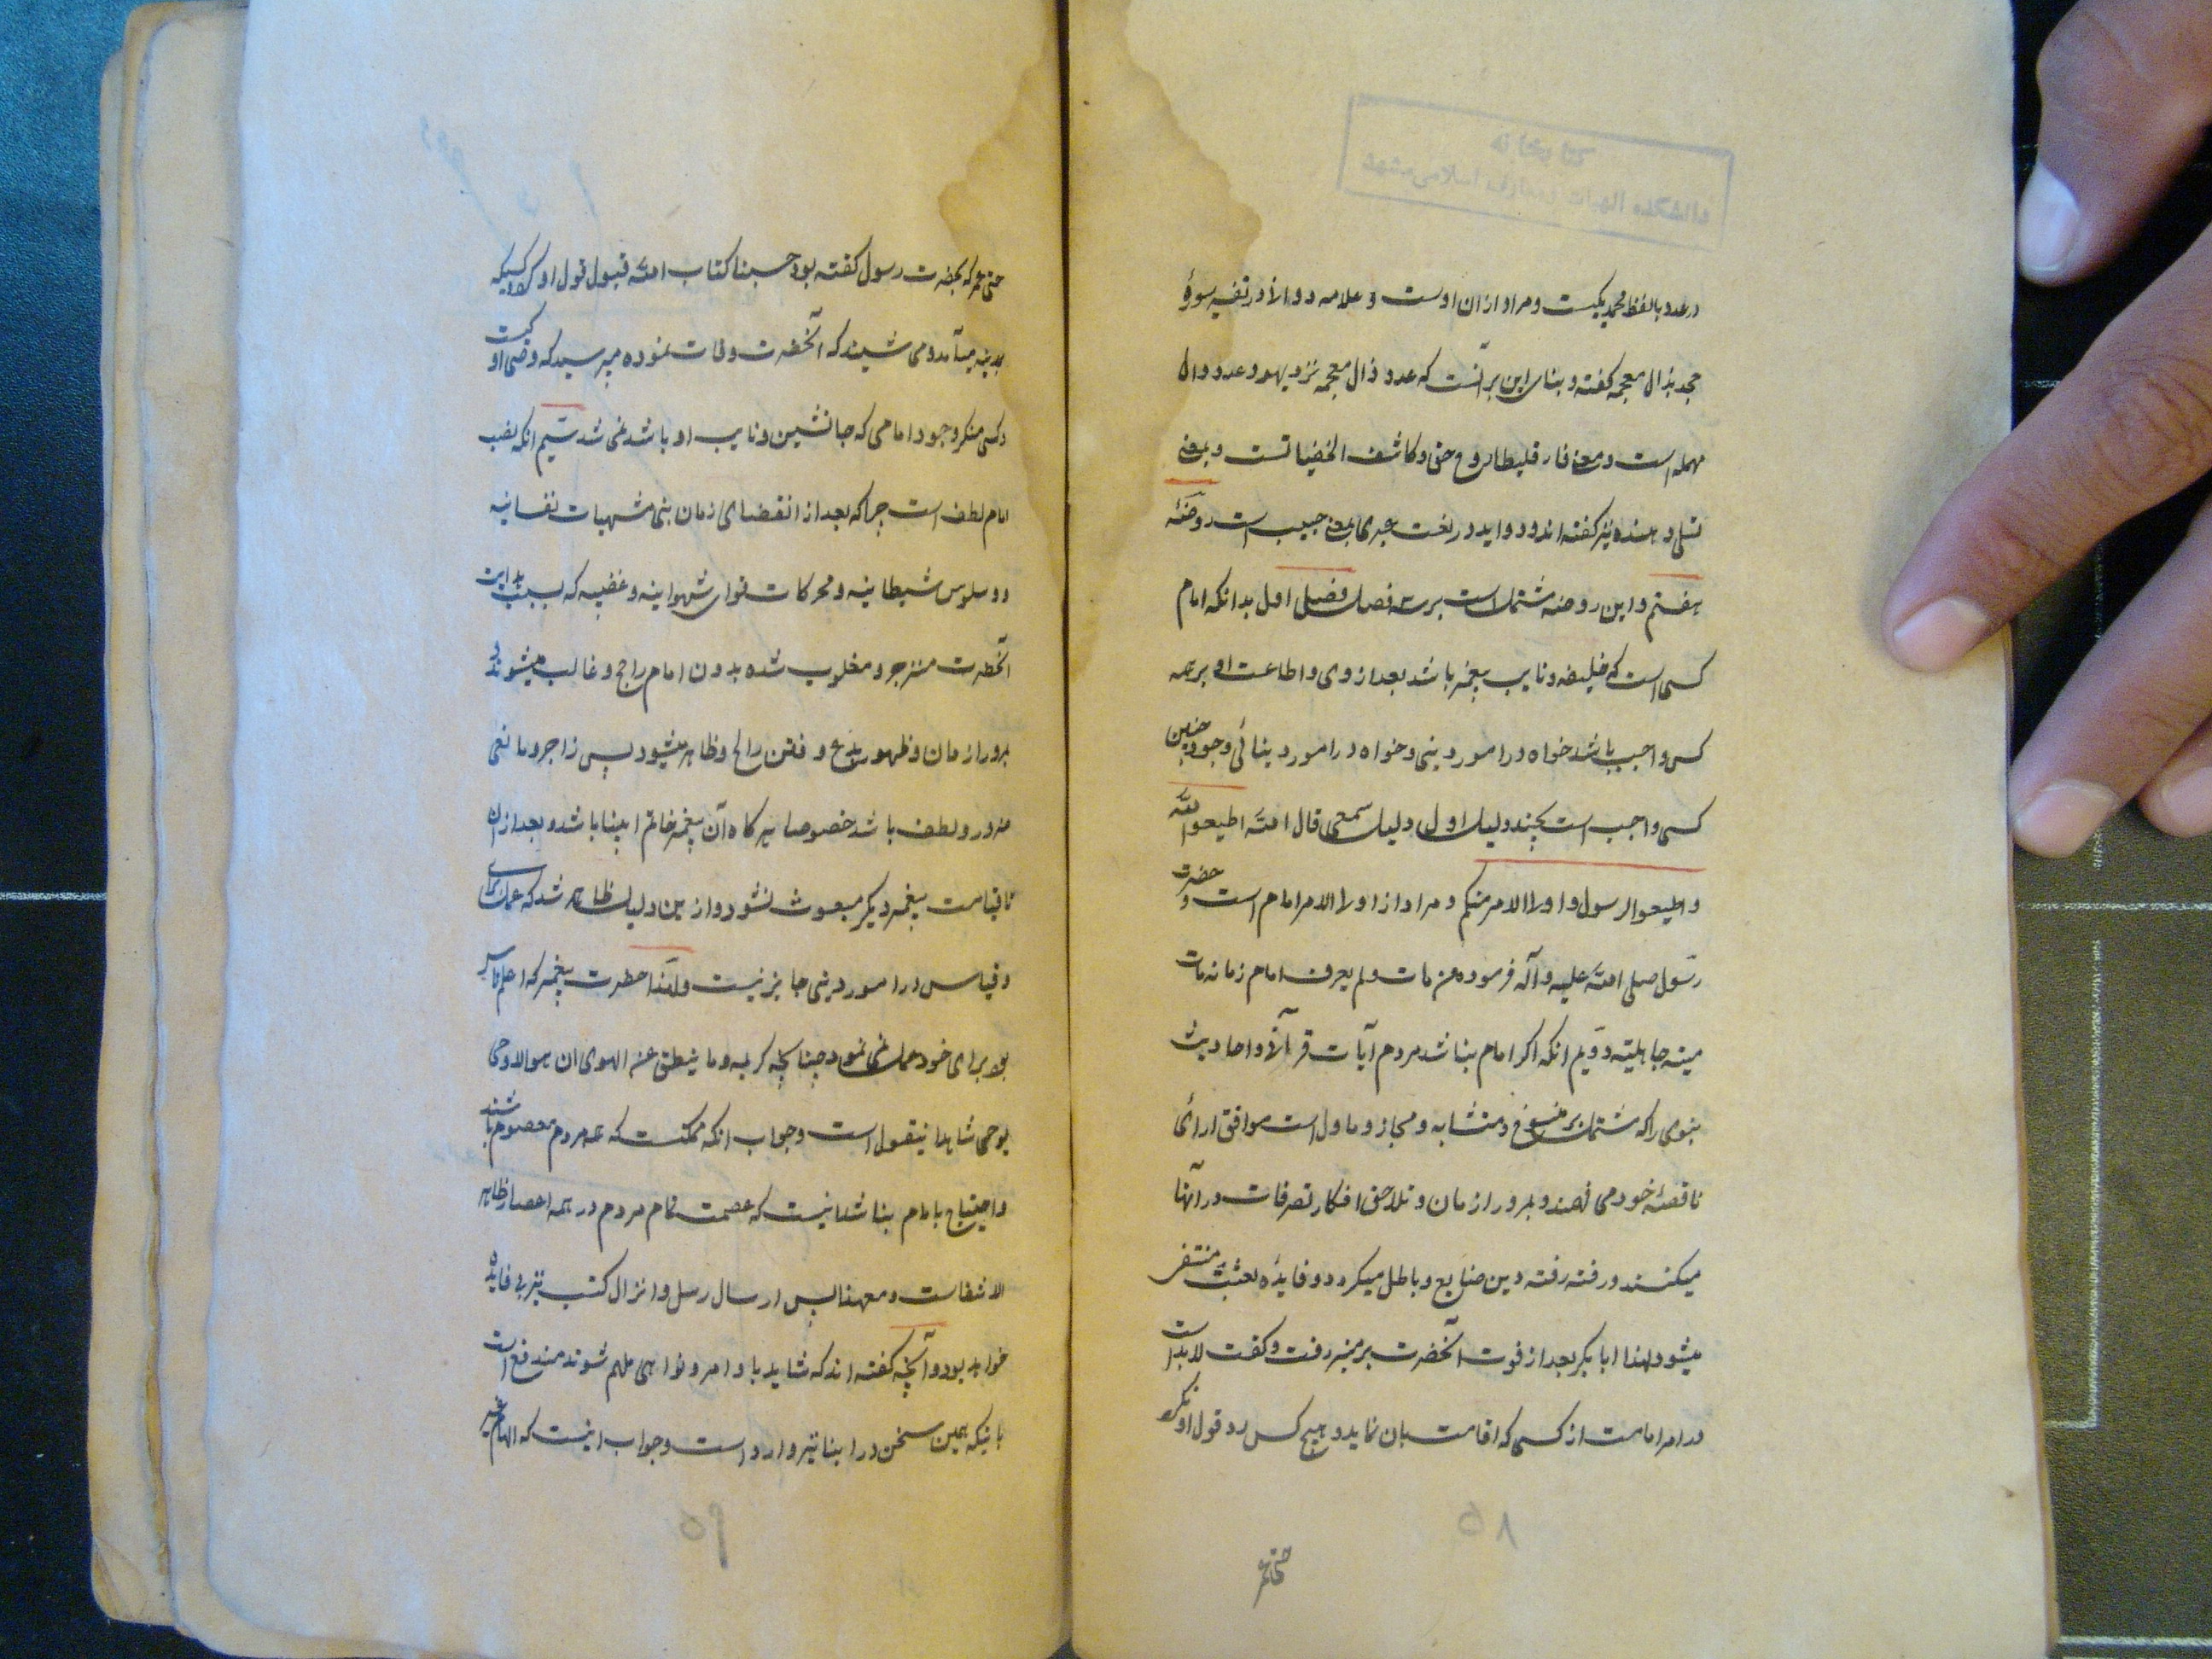 در عدد با لفظ محمد یکیست و مراد از ان اوست و علامه دوانی در تفسیر سورهٔ
محمد بذال معجمه گفته و بنای این بر آنست که عدد ذال معجمه نزد یهود عدد دال
مهمله است و معنی فارقلیطا روح حق و کاشف الخفیاتست و بمعنی
تسلی دهنده نیز گفته اند و دواید در لغت عبری بمعنی حبیب است روضهٔ
هفتم و این روضه مشتمل است بر سه فصل فصل اول بدانکه امام
کسی است که خلیفه و نایب پیغمبر باشد بعد از وی و اطاعت او بر همه
کس واجب باشد خواه در امور دینی و خواه در امور دنیائی وجود چنین
کسی واجب است بچند دلیل اول دلیل سمعی قال الله اطیعوا الله
و اطیعوا الرسول و اولی الامر منکم و مراد از اولی الامر امام است و حضرت
رسول صلی الله علیه و آله فرموده من مات و لم یعرف امام زمانه مات
میته جاهلیته دویم انکه اگر امام نباشد مردم آیات قرآنی و احادیث
نبوی را که مشتمل بر منسوخ و متشابه و مجاز و ماول است موافق ارائی
ناقصهٔ خود می فهمند و بمرور ازمان و تلاحق افکار تصرفات در آنها
میکنند و رفته رفته دین ضایع و باطل میکردد و فایدهٔ بعثت منتفی
میشود لهذا ابابکر بعد از فوت آنحضرت بر منبر رفت و گفت لابد است
در امر امامت از کسی که اقامت بان نماید و هیچ کس رد قول او نکرد
۵۸
حتی عمر
حتی عمر که بحضرت رسول گفته بود حسبنا کتاب الله قبول قول او کرد و کسیکه
بمدینه میآمد و می شنید که آنحضرت وفات نموده میپرسید که وصی او کیست
و کسی منکر وجود امامی که جانشین و نایب او باشد نمی شد سیم انکه نصب
امام لطف است چرا که بعد از انقضای زمان نبی مشهیات نفسانیه
و وساوس شیطانیه و محرکات قوای شهوانیه و غضبیه که بسبب هدایت
آنحضرت منزجر و مغلوب شده بدون امام راجح و غالب میشوند و
بمرور ازمان و ظهور بدع و فتن رایج و ظاهر میشود پس زاجر و مانعی
ضرور و لطف باشد خصوصا هرگاه آن پیغمبر خاتم انبیا باشد و بعد از ان
تا قیامت پیغمبر دیگر مبعوث نشود و از این دلیل ظاهر شد که عمل برای
و قیاس در امور دینی جایز نیست و لهذا حضرت پیغمبر که اعلم ناس
بود برای خود عمل نمی نمود چنانچه کریمه و ما ینطق عن الهوی ان هو الا وحی
یوحی شاهد اینقول است و جواب انکه ممکنست که همه مردم معصوم باشند
و احتیاج بامام نباشد اینست که عصمت تمام مردم در همه اعصار ظاهر
الانتفاست و معهذا پس ارسال رسل و انزال کتب نیز بی فایده
خواهد بود و آنچه گفته اند که شاید باوامر و نواهی ملهم شوند مندفع است
باینکه همین سخن در انبیا نیز وارد است و جواب اینست که الهام غیر
۵۹